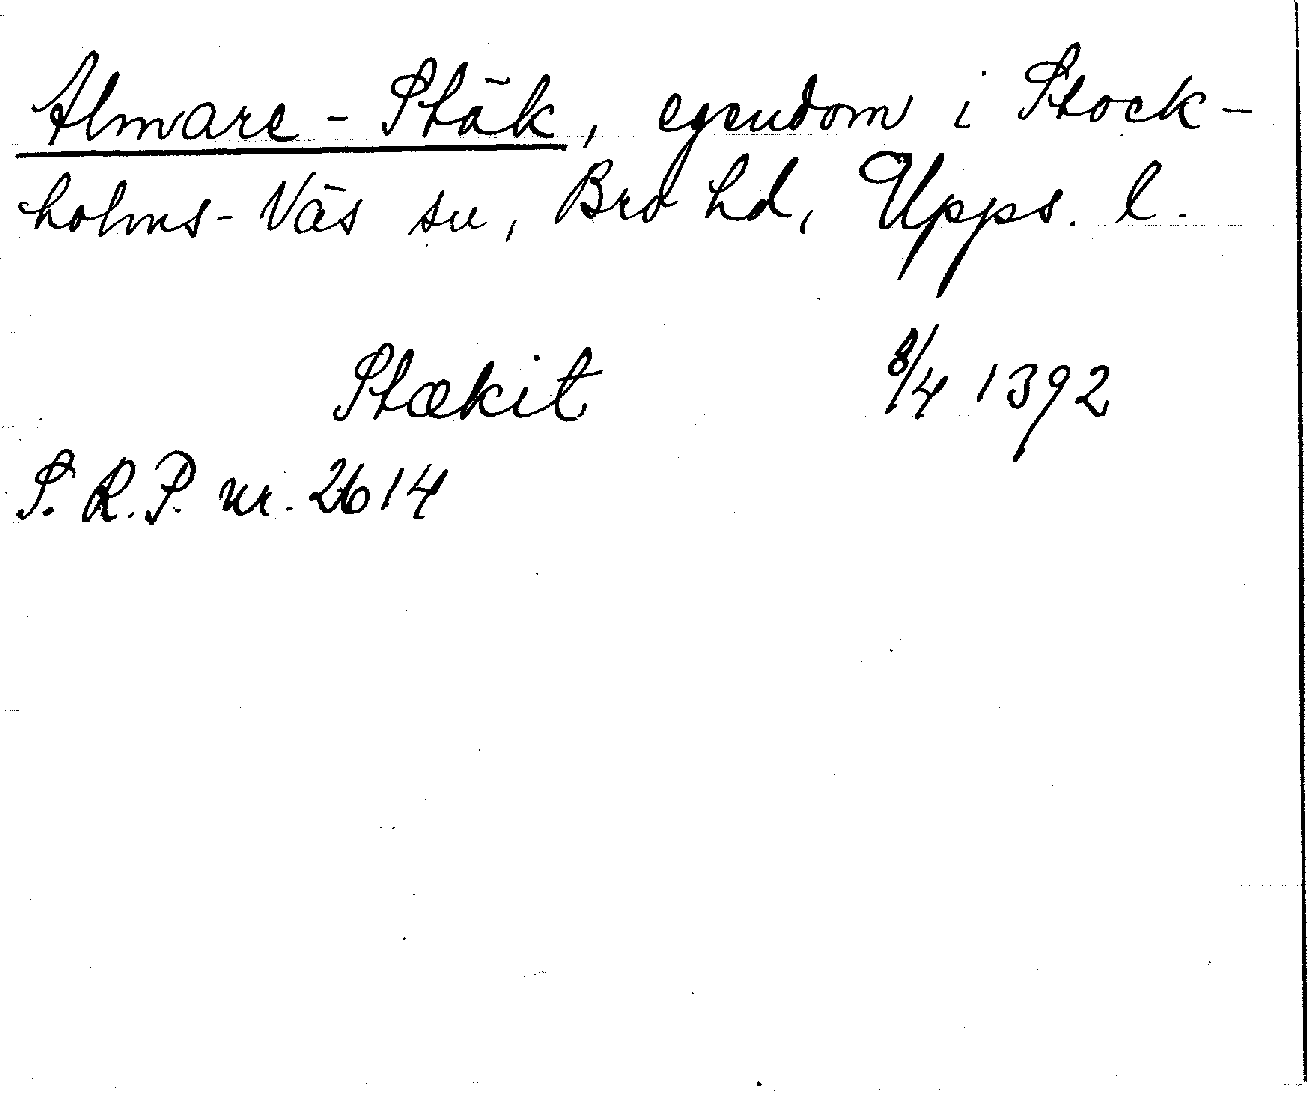 Almare-Stäk, egendom i Stock-
holms-Näs sn, Bro hd, Upps. l.
Stækit 8/4 1392
S.R.P. nr. 2614